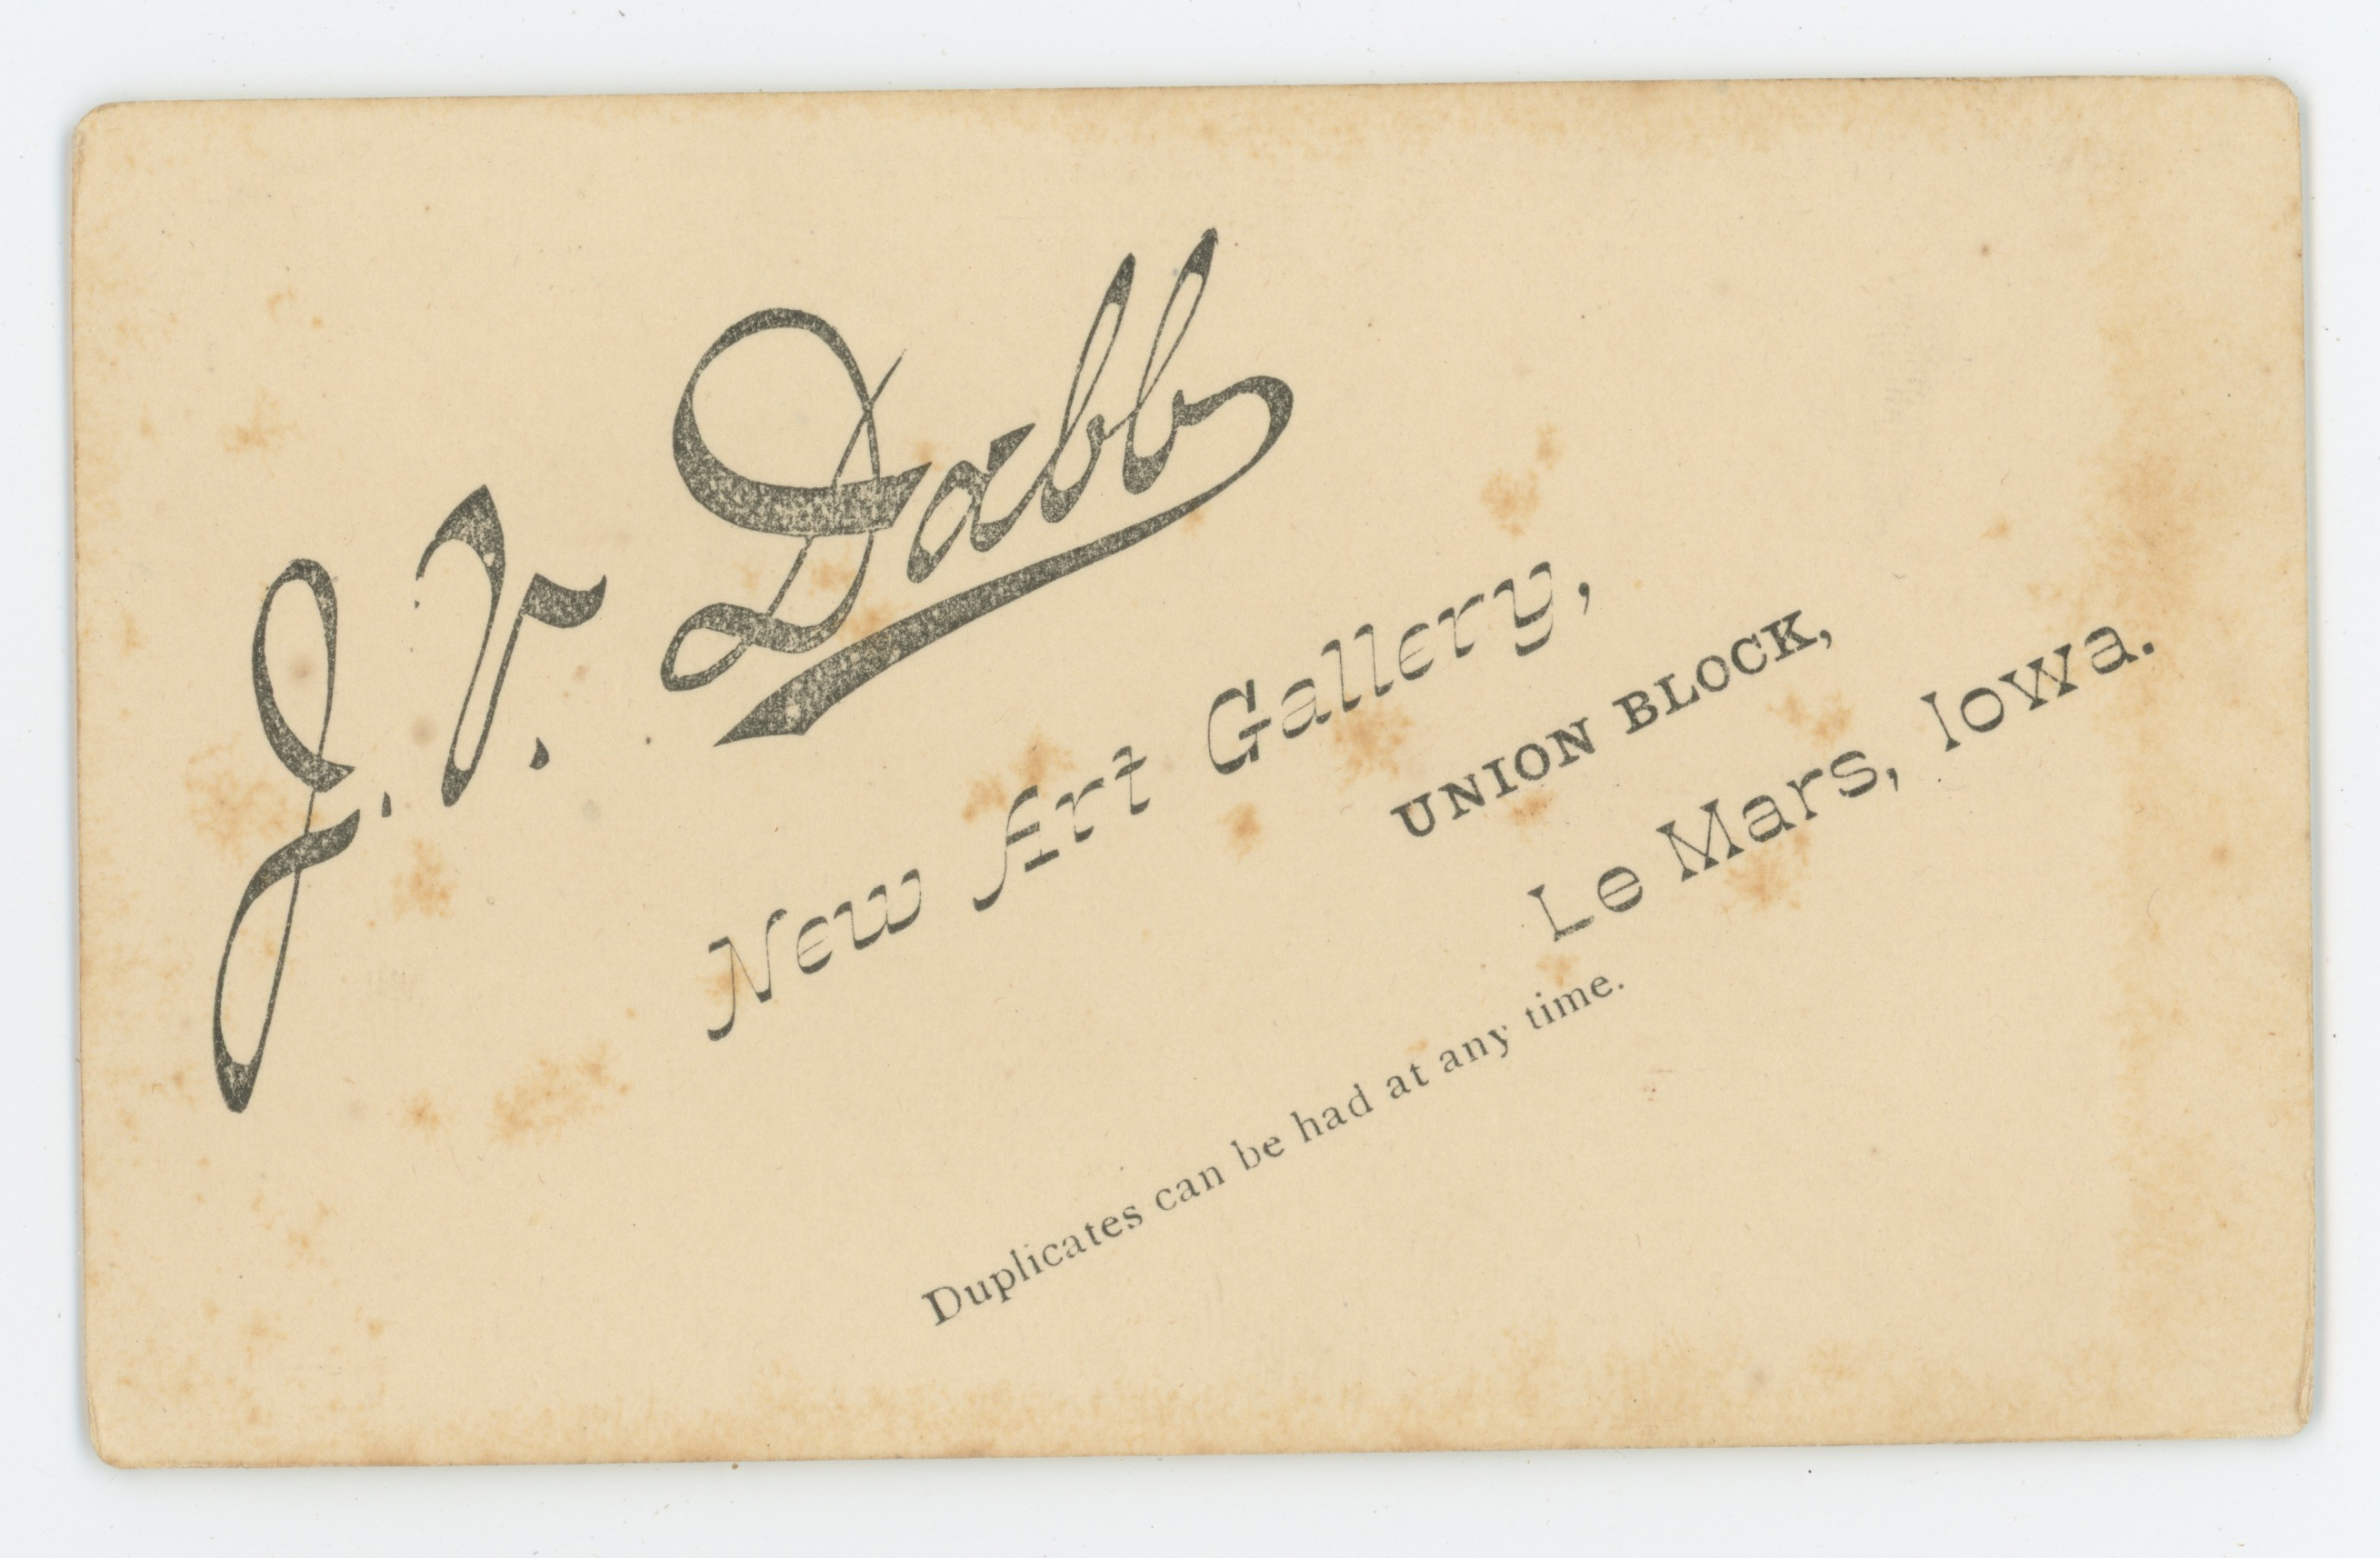 J. V. Dabb
New Art Gallery,
UNION BLOCK,
Le Mars, Iowa.
Duplicates can be had at any time.